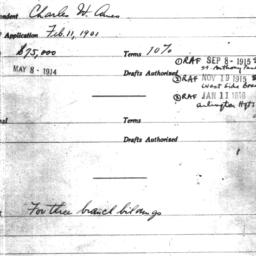 ndent Charles W. Ames
Application Feb. 11, 1901
$75,000 Terms 10%
MAY 8 - 1914 Drafts Authorized
① RAF SEP 8 - 1915
St. Anthony Park
② RAF NOV 19 1915
West Side Bra
③ RAF JAN 11 1916
Arlington Hgts
Terms
Drafts Authorized
For three branch bldings